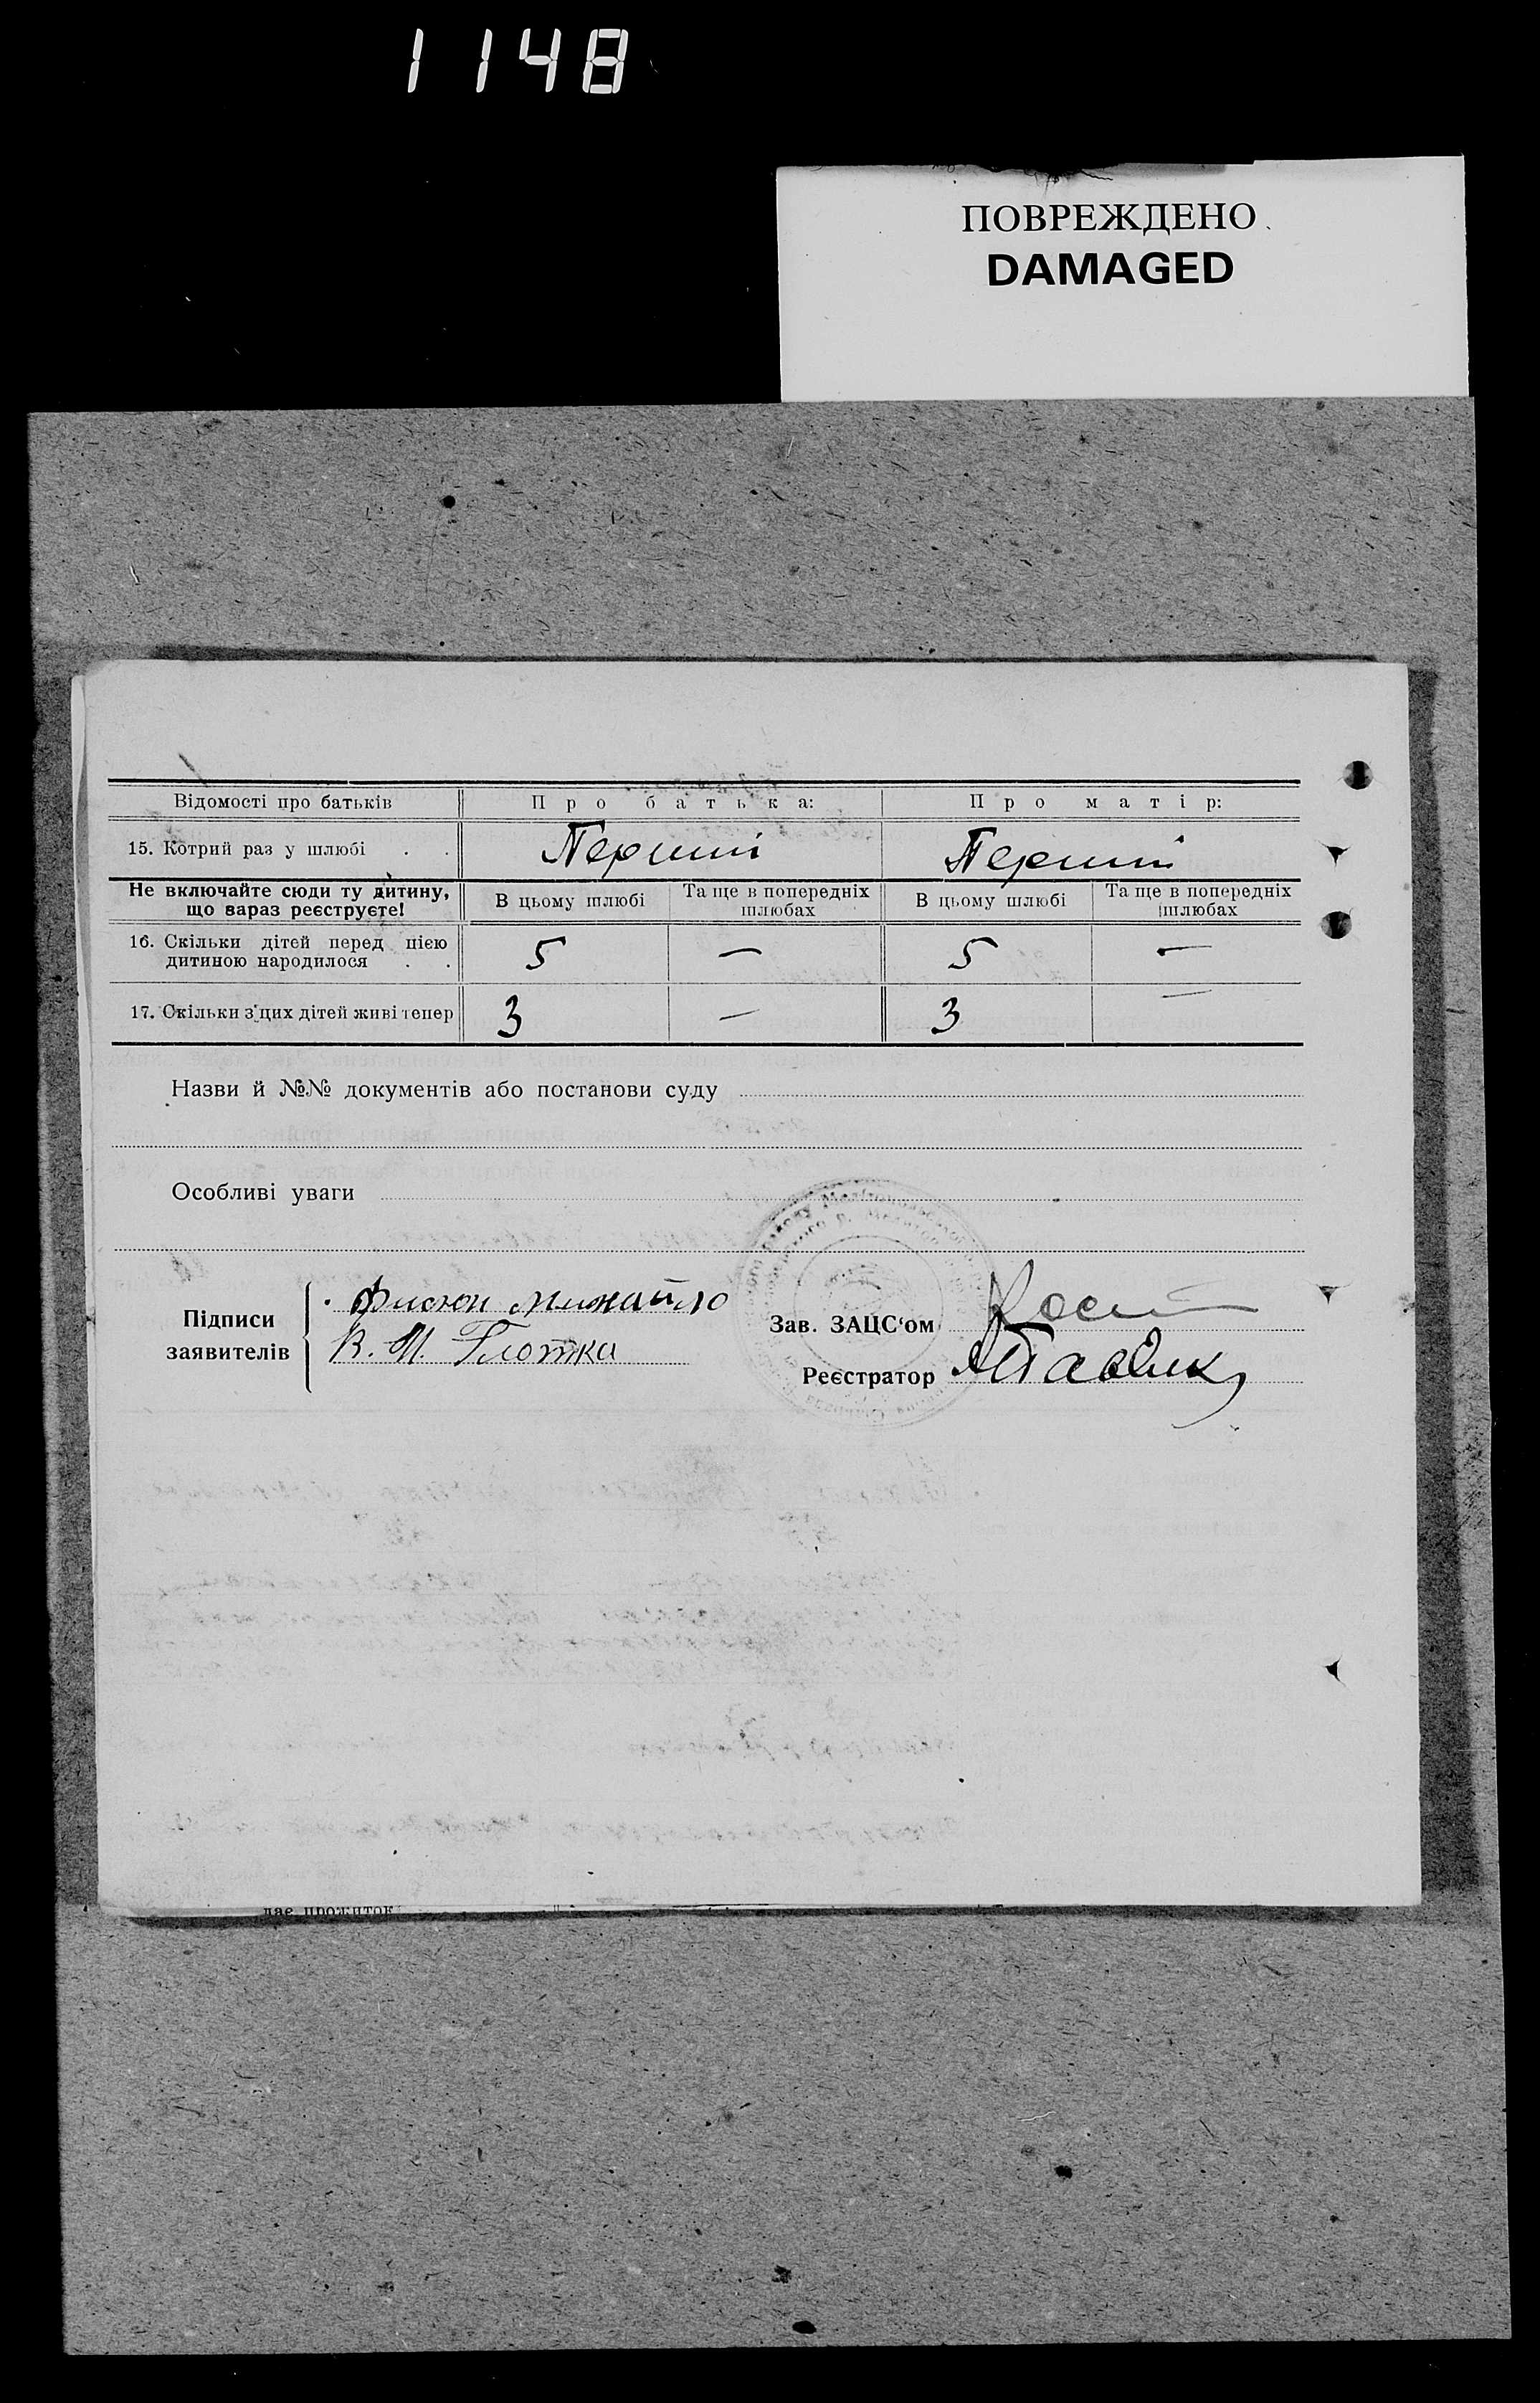 1148
ПОВРЕЖДЕНО
DAMAGED
Відомості про батьків
Про батька:
Про матір:
15. Котрий раз у шлюбі . .
Перший
Перший
Не включайте сюди ту дитину,
що вараз реєструєте!
В цьому шлюбі
Та ще в попередніх
шлюбах
В цьому шлюбі
Та ще в попередніх
шлюбах
16. Скільки дітей перед цією
дитиною народилося . .
5
—
5
—
17. Скільки з цих дітей живі тепер
3
—
3
—
Назви й №№ документів або постанови суду
Особливі уваги
Підписи
заявителів
Михайло
В. И. Глотка
Зав. ЗАЦС‘ом
Реєстратор
дає прожиток